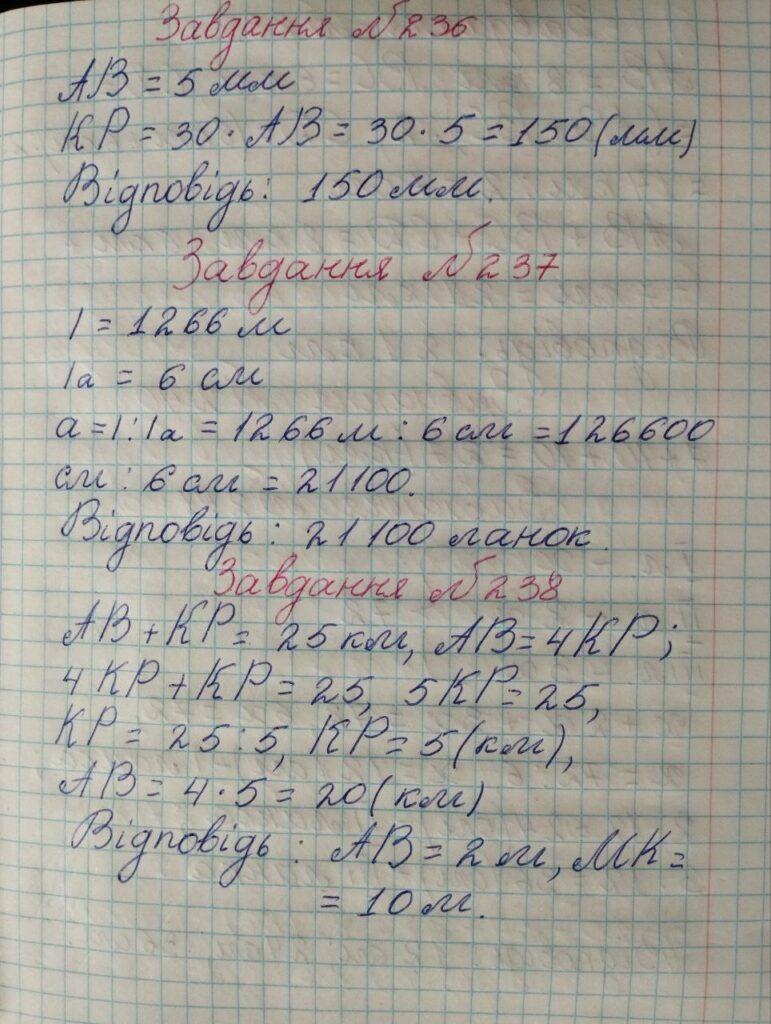 Завдання №236
AB = 5 мм
KP = 30 · AB = 30 · 5 = 150 (мм)
Відповідь: 150 мм.
Завдання №237
l = 1266 м
lа = 6 см
a = l : lа = 1266 м : 6 см = 126600
см : 6 см = 21100.
Відповідь: 21100 ланок.
Завдання №238
AB + KP = 25 км, AB = 4 KP;
4 KP + KP = 25, 5 KP = 25,
KP = 25 : 5, KP = 5 (км),
AB = 4 · 5 = 20 (км)
Відповідь: AB = 2 м, MK =
= 10 м.